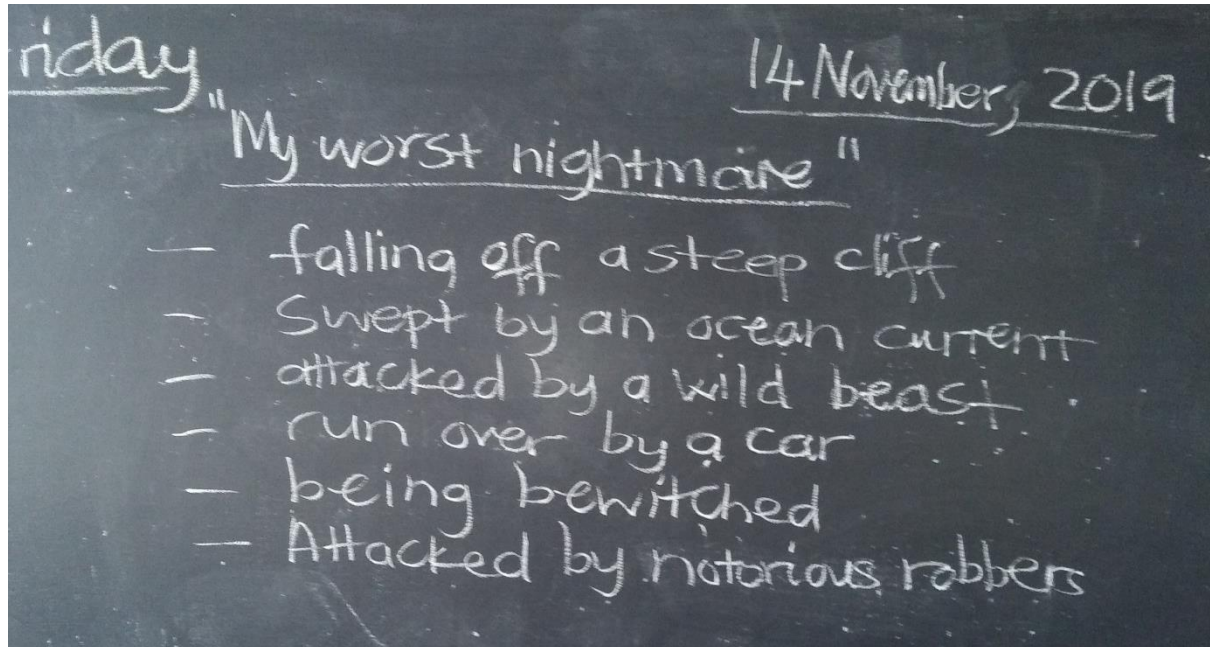 riday 14 November, 2019
"My worst nightmare"
— falling off a steep cliff
— Swept by an ocean current
— attacked by a wild beast.
— run over by a car
— being bewitched
— Attacked by notorious robbers